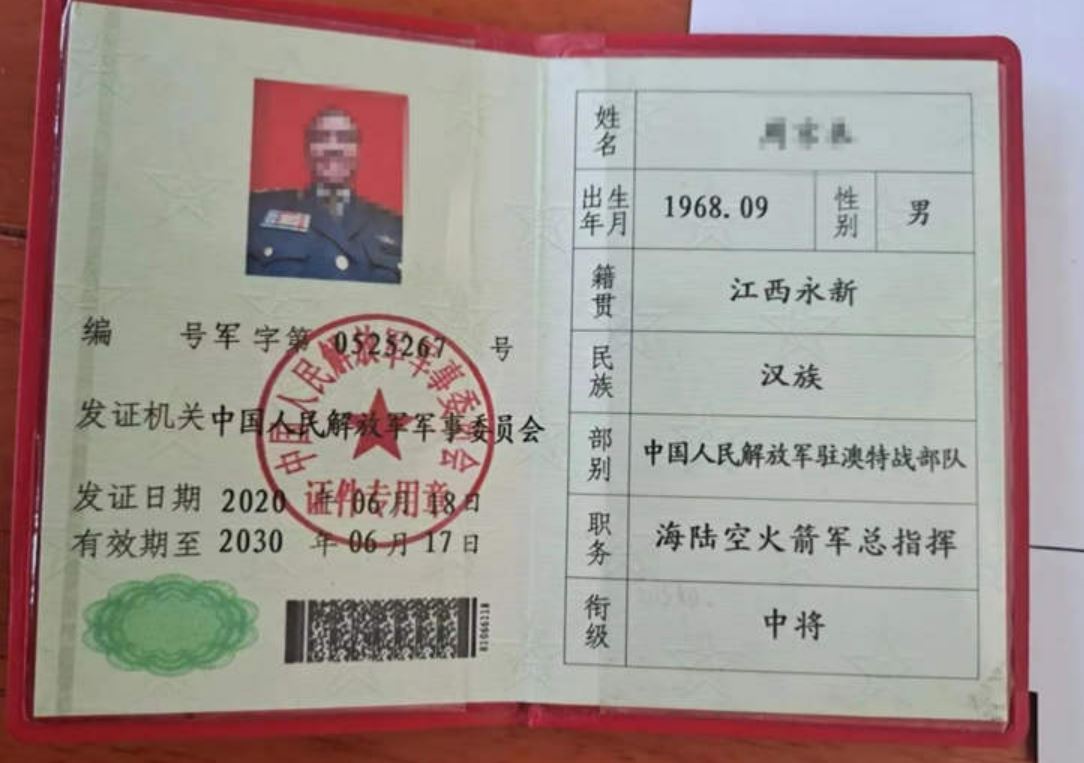 编 号军字第 0525267 号
发证机关 中国人民解放军军事委员会
发证日期 2020 年 06 月 18 日
有效期至 2030 年 06 月 17 日
中国人民解放军军事委员会
证件专用章
姓名
出生年月 1968.09 性别 男
籍贯 江西永新
民族 汉族
部别 中国人民解放军驻澳特战部队
职务 海陆空火箭军总指挥
衔级 中将